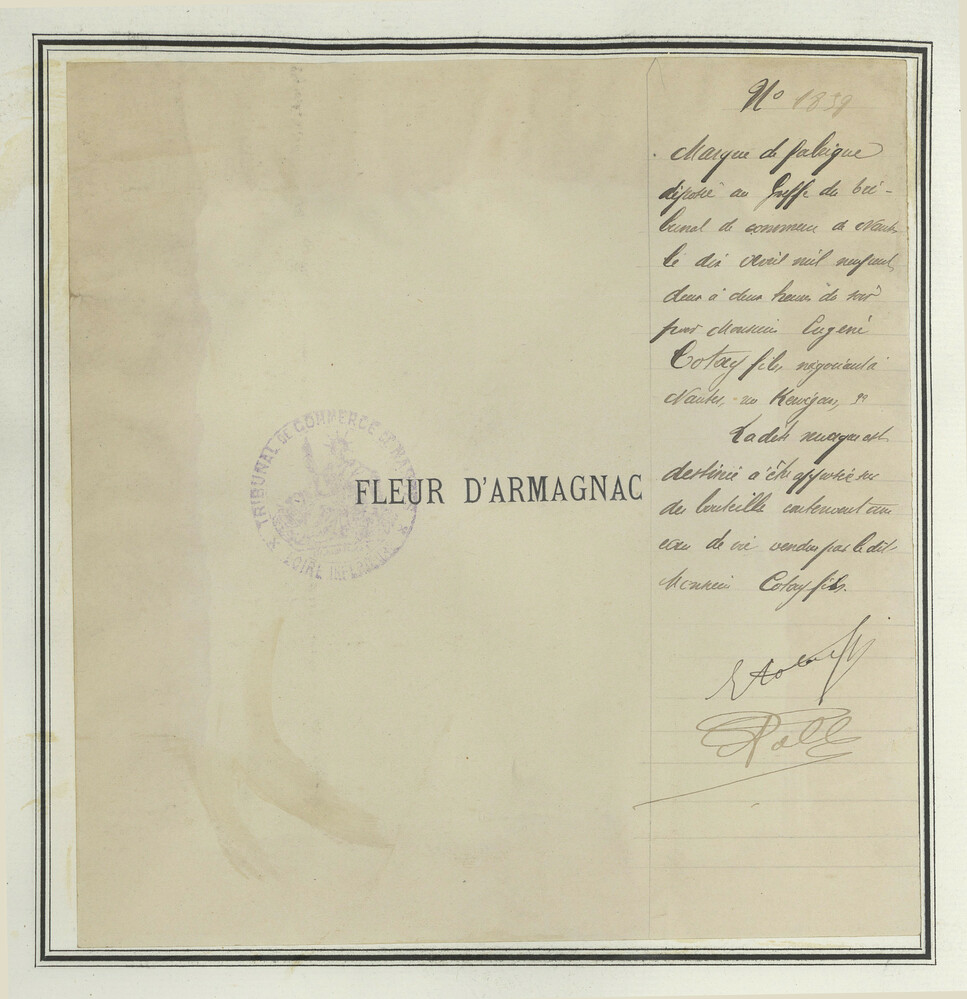 N° 1839
Marque de fabrique
déposée au Greffe du tri-
bunal de commerce de Nantes
le dix avril mil neuf cent
deux à deux heures du soir
par Monsieur Eugène
Cotay fils, négociant à
Nantes, rue Kervégan,
Ladite marque est
destinée à être apposée sur
des bouteilles contenant une
eau de vie vendue par le dit
Monsieur Cotay fils.
TRIBUNAL DE COMMERCE DE NANTES
LOIRE INFÉRIEURE
FLEUR D'ARMAGNAC